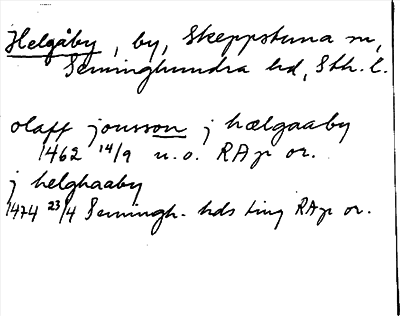 Helgåby, by, Skeppstuna sn,
Seminghundra hd, Sth. l.
olaff jonsson j hælgaaby
1462 14/9 u.o. RAp or.
j helghaaby
1474 23/4 Semingh. hds ting RAp or.